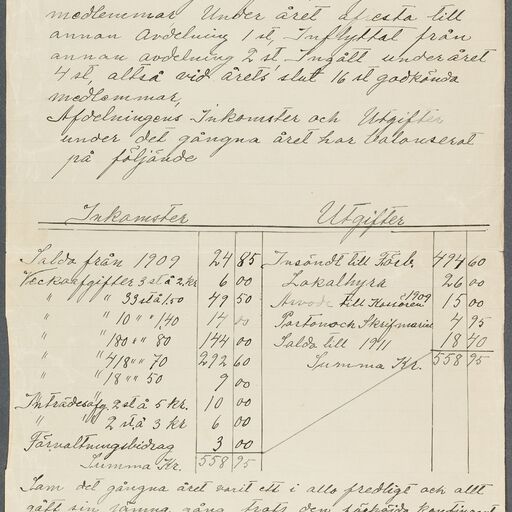 medlemmar Under året afresta till
annan Avdelning 1 st, Inflyttat från
annan avdelning 2 st. Ingått under året
4 st, alltså vid årets slut 16 st godkända
medlemmar,
Afdelningens Inkomster och Utgifter
under det gångna året har balanserat
på följande
Inkomster Utgifter
Saldo från 1909 24 85 Insändt till Förb. 494 60
Veckoafgifter 3 st à 2 kr 6 00 Lokalhyra 26 00
" " 33 st à 1,50 49 50 till Kassören 1909 15 00
" " 10 " " 1,40 14 00 Porton och Skrifmaterial 4 95
" " 180 " " 80 144 00 Saldo till 1911 18 40
" " 418 " " 70 292 60 Summa Kr. 558 95
" " 18 " " 50 9 00
Inträdesafg. 2 st à 5 kr. 10 00
" " 2 st à 3 kr 6 00
Förvaltningsbidrag 3 00
Summa Kr. 558 95
det gångna året varit ett i allo fredligt och allt
gått sin jämna gång trots den